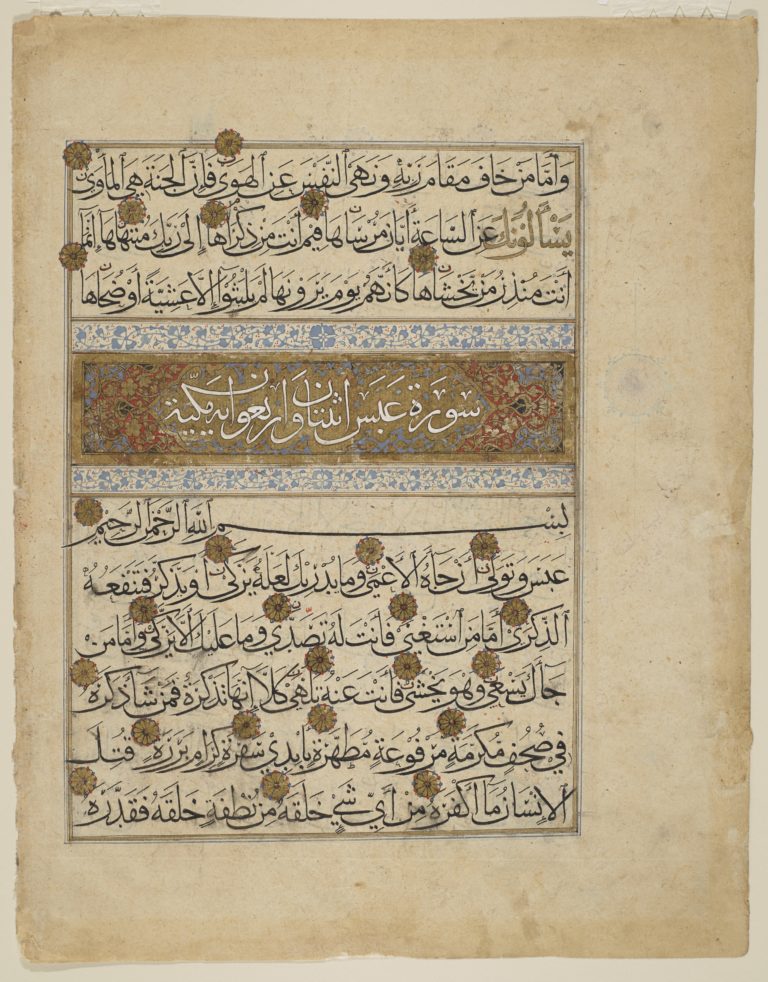 وَأَمَّا مَنْ خَافَ مَقَامَ رَبِّهِ وَنَهَى ٱلنَّفْسَ عَنِ ٱلْهَوَىٰ فَإِنَّ ٱلْجَنَّةَ هِيَ ٱلْمَأْوَىٰ
يَسْأَلُونَكَ عَنِ ٱلسَّاعَةِ أَيَّانَ مُرْسَاهَا فِيمَ أَنْتَ مِنْ ذِكْرَاهَا إِلَىٰ رَبِّكَ مُنْتَهَاهَا إِنَّمَا
أَنْتَ مُنْذِرُ مَنْ يَخْشَاهَا كَأَنَّهُمْ يَوْمَ يَرَوْنَهَا لَمْ يَلْبَثُوا إِلَّا عَشِيَّةً أَوْ ضُحَاهَا
سورة عبس اثنتان واربعون اية مكية
بِسْمِ ٱللَّهِ ٱلرَّحْمَٰنِ ٱلرَّحِيمِ
عَبَسَ وَتَوَلَّىٰ أَنْ جَاءَهُ ٱلْأَعْمَىٰ وَمَا يُدْرِيكَ لَعَلَّهُ يَزَّكَّىٰ أَوْ يَذَّكَّرُ فَتَنْفَعَهُ
ٱلذِّكْرَىٰ أَمَّا مَنِ ٱسْتَغْنَىٰ فَأَنْتَ لَهُ تَصَدَّىٰ وَمَا عَلَيْكَ أَلَّا يَزَّكَّىٰ وَأَمَّا مَنْ
جَاءَكَ يَسْعَىٰ وَهُوَ يَخْشَىٰ فَأَنْتَ عَنْهُ تَلَهَّىٰ كَلَّا إِنَّهَا تَذْكِرَةٌ فَمَنْ شَاءَ ذَكَرَهُ
فِي صُحُفٍ مُكَرَّمَةٍ مَرْفُوعَةٍ مُطَهَّرَةٍ بِأَيْدِي سَفَرَةٍ كِرَامٍ بَرَرَةٍ قُتِلَ
ٱلْإِنْسَانُ مَا أَكْفَرَهُ مِنْ أَيِّ شَيْءٍ خَلَقَهُ مِنْ نُطْفَةٍ خَلَقَهُ فَقَدَّرَهُ